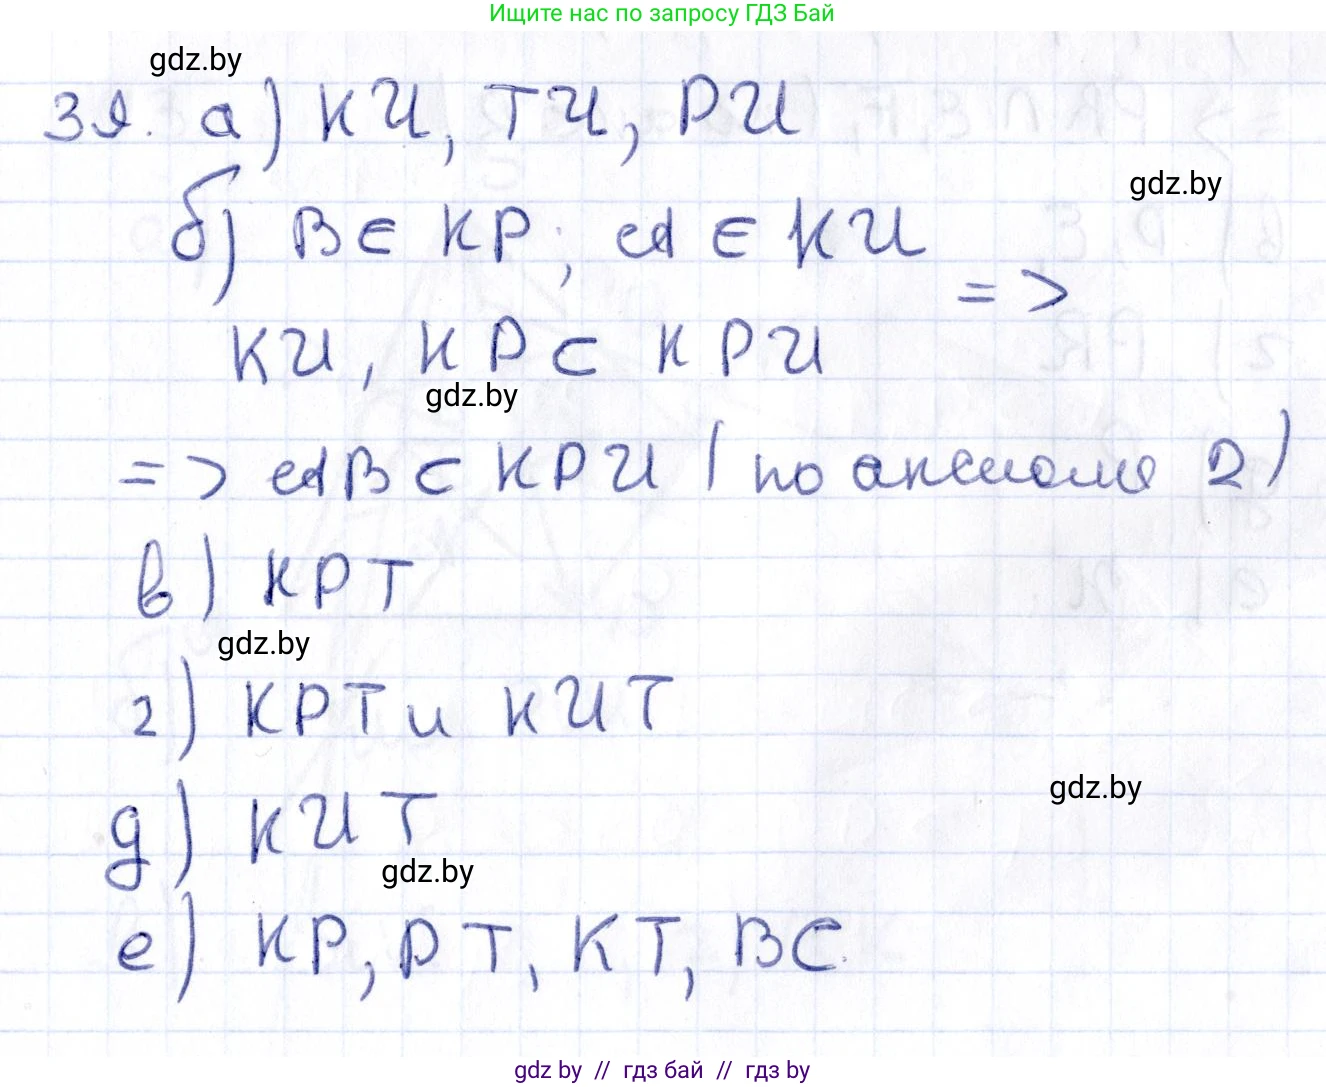 Ищите нас по запросу ГДЗ Бай
gdz.by
39. а) КИ, ТИ, РИ
gdz.by
б) В ∈ КР; А ∈ КИ
=>
КИ, КР ⊂ КРИ
gdz.by
=> АВ ⊂ КРИ (по аксиоме 2)
в) КРТ
gdz.by
г) КРТ и КИТ
gdz.by
д) КИТ
gdz.by
е) КР, РТ, КТ, ВС.
gdz by // гдз бай // гдз by